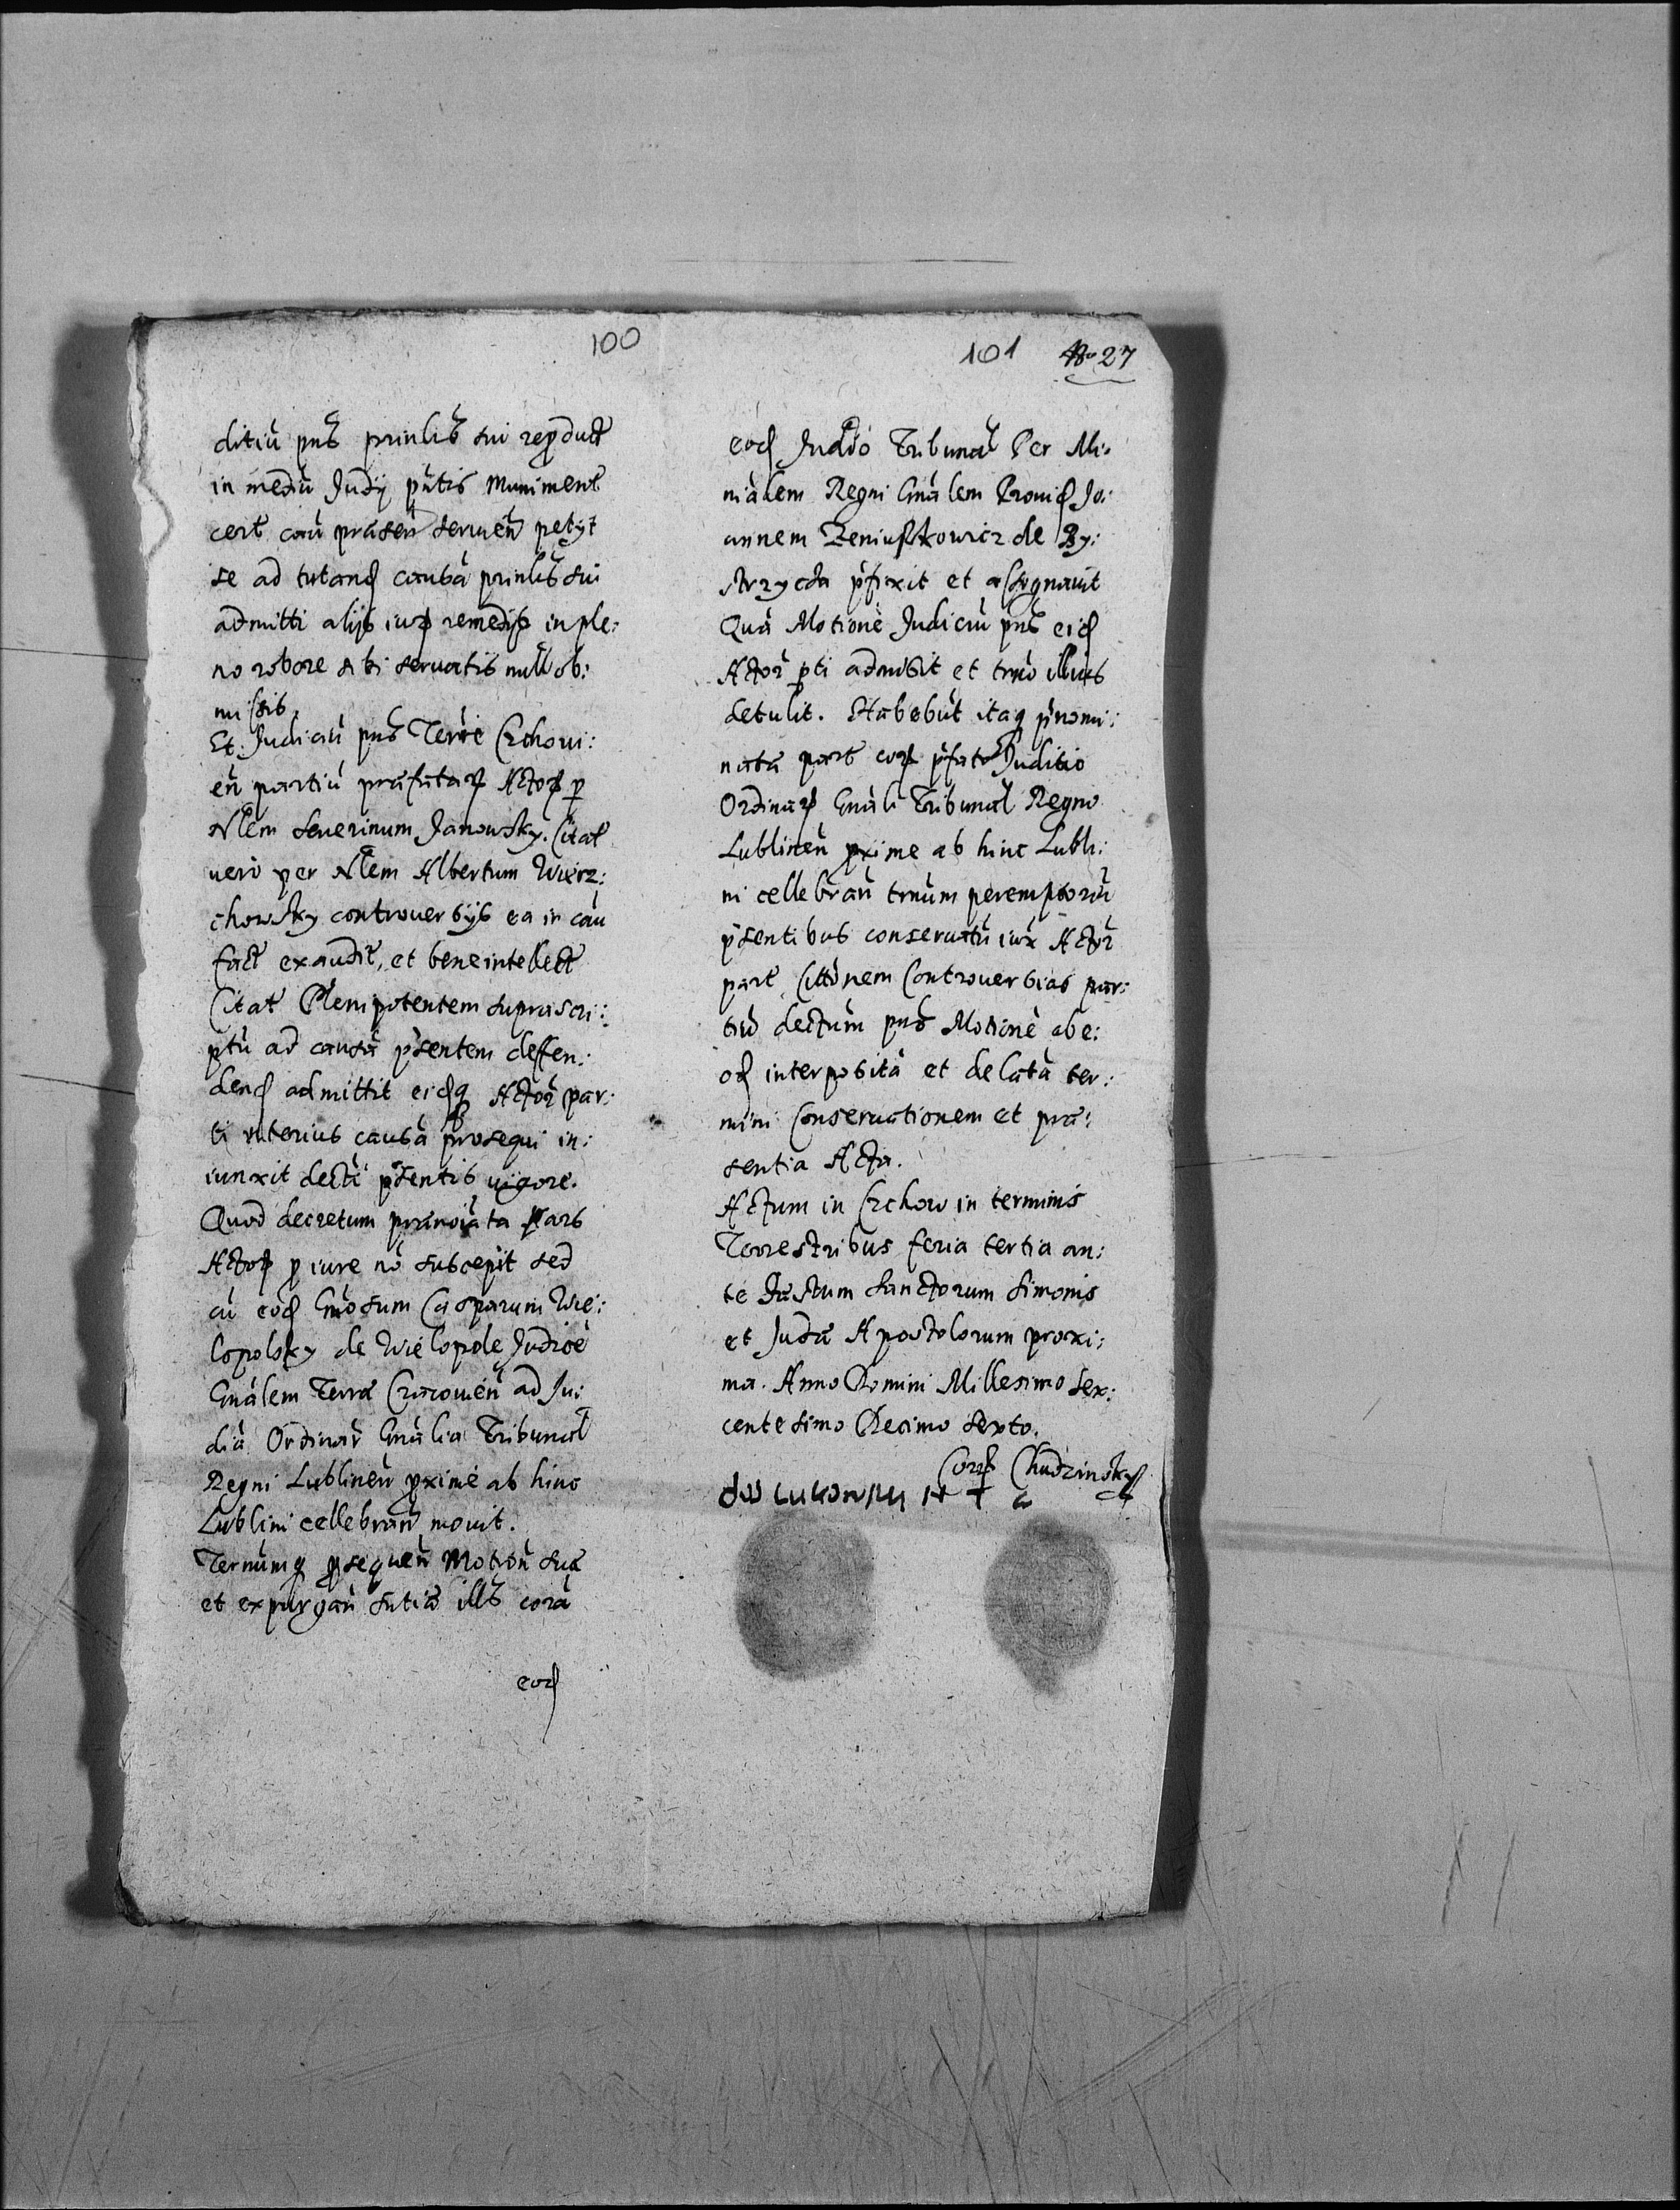 100
ditiũ pns̃ prinlis̃ sui reproduct̃
in mediũ Judÿ pñtis Muniment̃
cert̃ coñ præseñ serueñ petÿt
se ad tutand causã prinlis̃ sui
admitti alÿs iur remedÿs in ple:
no robore sibi seruatis null ob:
missis.
Et Judiciũ pns̃ Terre Czchoui:
eñ partiũ præfatar Actor p
Nlem Seuerinum Janowsky. Citat
uero per Nlem Albertum Wierz:
chowsky controuersÿs ea in cãu
fact̃ exaudit, et bene intellect̃
Citat Plempotentem suprascri:
ptũ ad causã p̃sentem deffen:
dend admittit eidq Actor̃ par:
ti vlterius causã prosequi in:
iunxit decti p̃sentis uigore.
Quod decretum prænoiãta Pars
Actor p iure nõ suscepit sed
cũ eod Gñosum Casparum Wie:
lopolsky de Wielopole Judicẽ
Gnãlem Terræ Cracouieñ ad Ju:
dia Ordinar̃ Gnãlia Tribunal̃
Regni Lublineñ pximẽ ab hinc
Lublini cellebrañ mouit.
Ternũmq psequeñ Motioñ suã
et expurgañ sntiã ills̃ corã
eod
101 No 27
eod Judĩo Tribunal̃ Per Mi:
niãlem Regni Gnãlem Prouid Jo:
annem Zeniuszkowicz de By:
strzycza p̃fixit et assignauit
Quã Motionẽ Judiciũ pns̃ eid
Actor̃ pti admisit et tmño illius
detulit. Habebũt itaq p̃nomi:
nata part cor p̃fato Juditio
Ordinar Gnãli Tribunal̃ Regni
Lublineñ pxime ab hinc Lubli:
ni cellebrañ tmũm peremptoriũ
p̃sentibus conseruatũ iux Actor̃
part Cittõnem Controuersias par:
tiũ dectum pns̃ Motionẽ ab e:
od interpositã et delatã ter:
mini Conseruationem et præ:
sentia Acta.
Actum in Czchow in terminis
Terrestribus feria tertia an:
te Fæstum Sanctorum Simonis
et Judæ Apostolorum proxi:
ma. Anno Domini Millesimo Sex:
centesimo Decimo Sexto.
Corr Chudzinsky